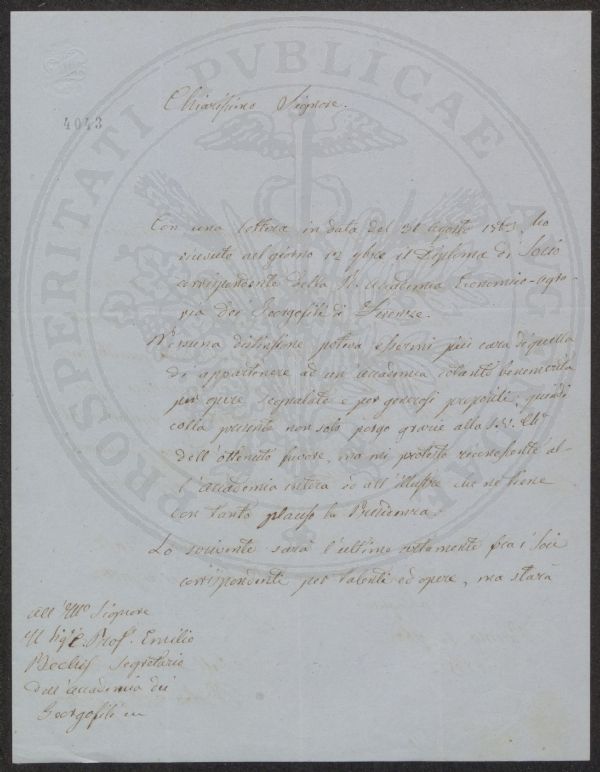 PROSPERITATI PVBLICAE AVGENDAE
4043
Chiarissimo Signore.
Con una lettera in data del 31 agosto 1863, ho
ricevuto nel giorno 12 9bre il Diploma di Socio
corrispondente della R. Accademia Economico-Agra-
ria dei Georgofili di Firenze.
Nessuna distinzione poteva essermi più cara di quella
di appartenere ad un'accademia cotanto benemerita
per opere segnalate e per generosi propositi; quindi
colla presente non solo porgo grazie alla S.V. Ch.
dell'ottenuto favore, ma mi protesto riconoscente al-
l'accademia intera ed all'illustre che ne tiene
con tanto plauso la Presidenza.
Lo scrivente sarà l'ultimo certamente fra i Soci
corrispondenti per talenti ed opere, ma starà
All' Illmo Signore
Il Sig. C. Prof. Emilio
Bechi Segretario
dell'accademia dei
Georgofili in